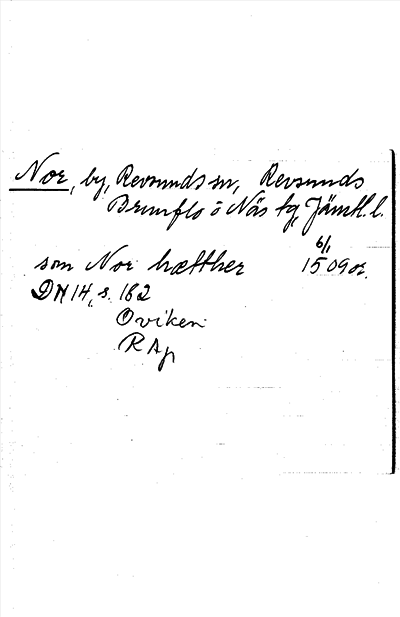 Nor, by, Revsunds sn, Revsunds
Brunflo o Näs tg, Jämtl. l.
6/1
som Nor hætther 1509 or.
DN 14, s. 162
Oviken
R Ap